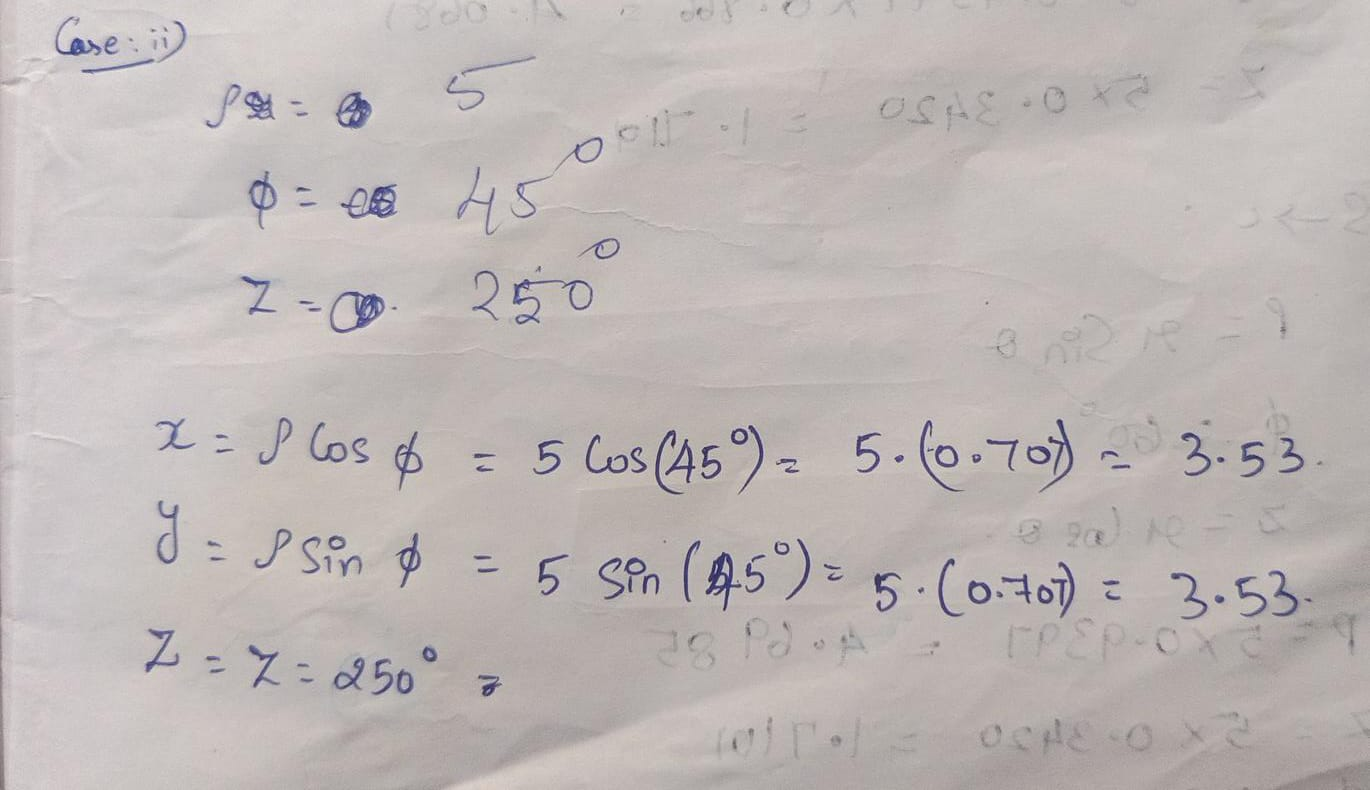 Case: ii)
ρ = 5
φ = 45°
Z = 250°
x = ρ Cos φ = 5 Cos(45°) = 5.(0.707) = 3.53.
y = ρ Sin φ = 5 Sin (45°) = 5.(0.707) = 3.53.
Z = Z = 250° =